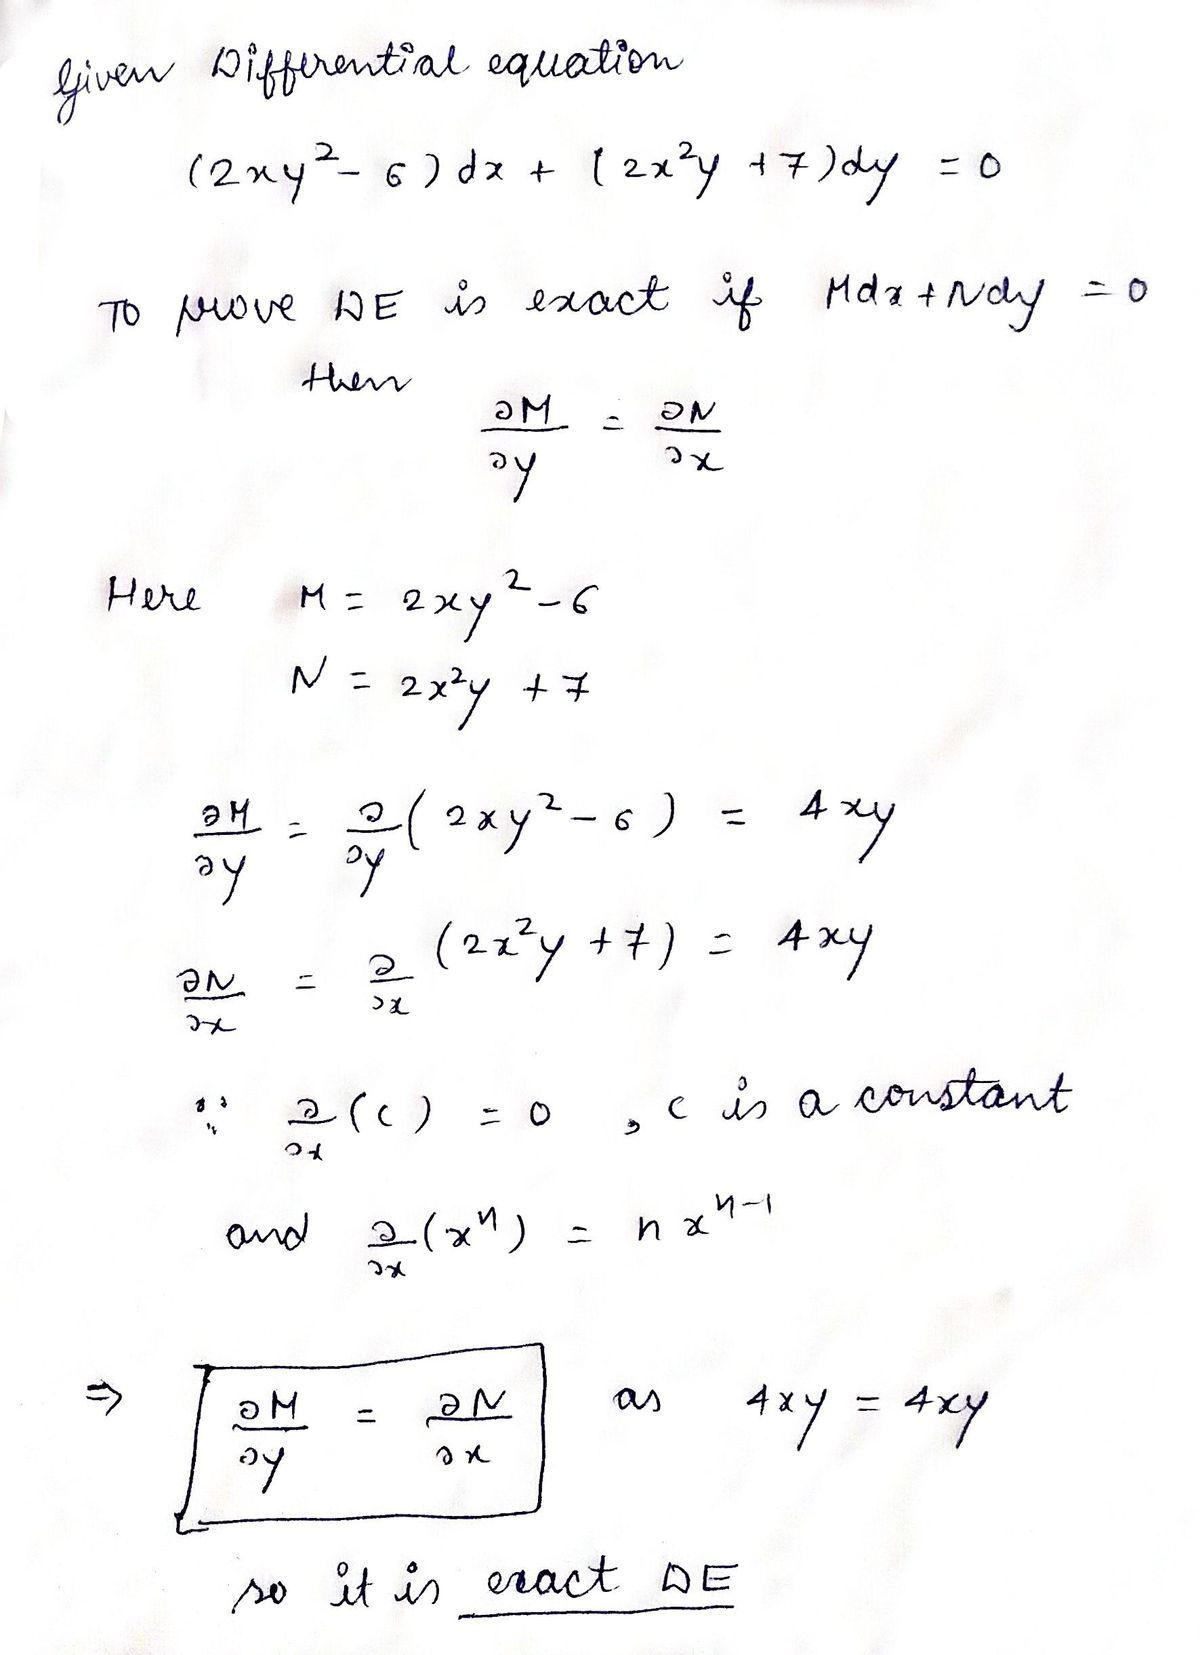 Given Differential equation
(2xy² - 6) dx + (2x²y + 7) dy = 0
To prove DE is exact if Mdx + Ndy = 0
then
∂M/∂y = ∂N/∂x
Here M = 2xy² - 6
N = 2x²y + 7
∂M/∂y = ∂/∂y (2xy² - 6) = 4xy
∂N/∂x = ∂/∂x (2x²y + 7) = 4xy
∵ ∂/∂x (c) = 0 , c is a constant
and ∂/∂x (xⁿ) = n xⁿ⁻¹
⇒ ∂M/∂y = ∂N/∂x as 4xy = 4xy
so it is exact DE